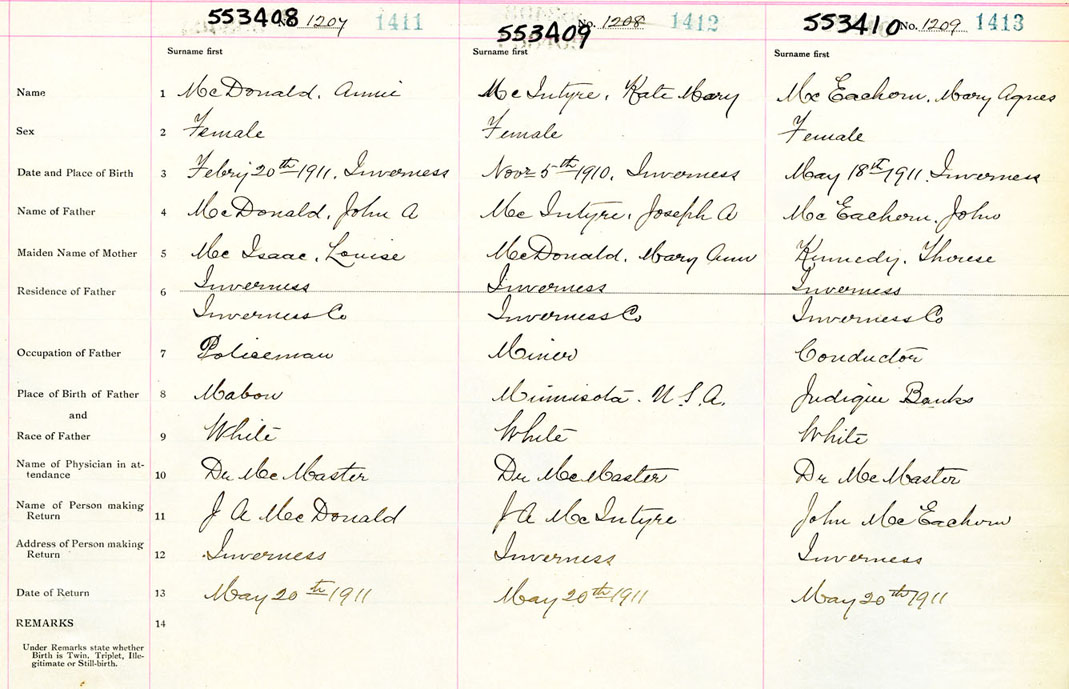 553408 No. 1207 1411 553409 No. 1208 1412 553410 No. 1209 1413
Surname first Surname first Surname first
Name 1 McDonald, Annie McIntyre, Kate Mary McEachern, Mary Agnes
Sex 2 Female Female Female
Date and Place of Birth 3 Febry 20th 1911, Inverness Novr 5th 1910, Inverness May 18th 1911, Inverness
Name of Father 4 McDonald, John A McIntyre, Joseph A McEachern, John
Maiden Name of Mother 5 McIsaac, Louise McDonald, Mary Ann Kennedy, Therese
Residence of Father 6 Inverness Inverness Inverness
Inverness Co Inverness Co Inverness Co
Occupation of Father 7 Policeman Miner Conductor
Place of Birth of Father 8 Mabou Minnisota. U.S.A. Judique Banks
and
Race of Father 9 White White White
Name of Physician in at-
tendance 10 Dr McMaster Dr McMaster Dr McMaster
Name of Person making
Return 11 J A McDonald J A McIntyre John McEachern
Address of Person making
Return 12 Inverness Inverness Inverness
Date of Return 13 May 20th 1911 May 20th 1911 May 20th 1911
REMARKS 14
Under Remarks state whether
Birth is Twin, Triplet, Ille-
gitimate or Still-birth.